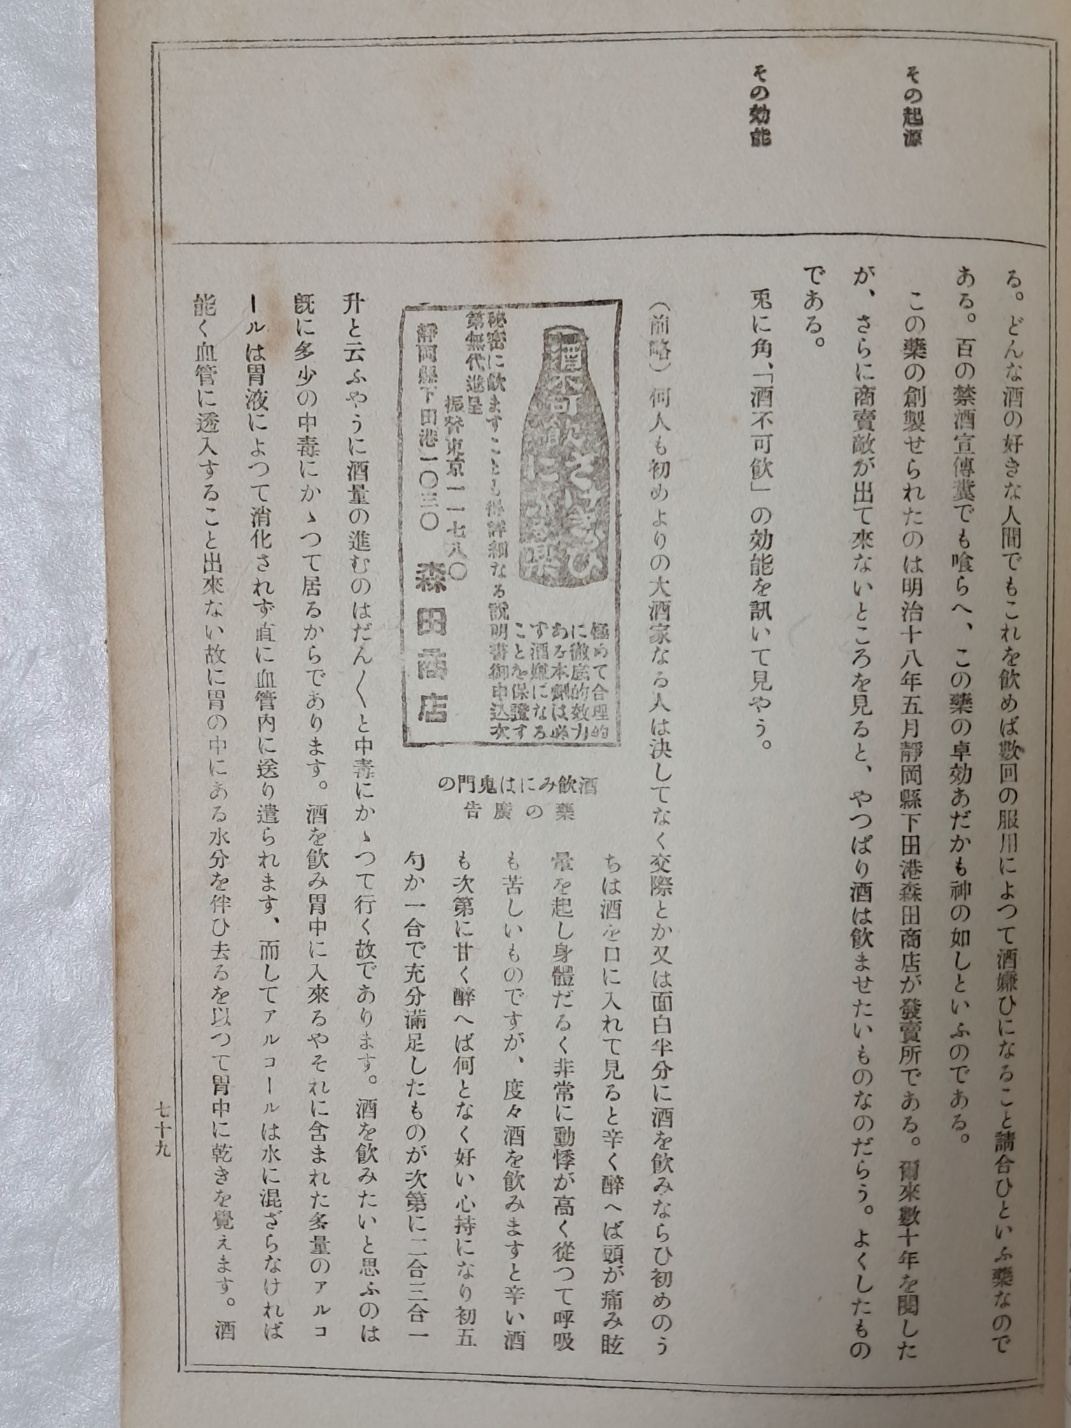 その起源
その効能
る。どんな酒の好きな人間でもこれを飲めば數回の服用によつて酒嫌ひになること請合ひといふ藥なので
ある。百の禁酒宣傳糞でも喰らへ、この藥の卓効あだかも神の如しといふのである。
この藥の創製せられたのは明治十八年五月靜岡縣下田港森田商店が發賣所である。爾來數十年を閲した
が、さらに商賣敵が出て來ないところを見ると、やつぱり酒は飲ませたいものなのだらう。よくしたもの
である。
兎に角、「酒不可飲」の効能を訊いて見やう。
（前略）何人も初めよりの大酒家なる人は決してなく交際とか又は面白半分に酒を飲みならひ初めのう
ちは酒を口に入れて見ると辛く醉へば頭が痛み眩
暈を起し身體だるく非常に動悸が高く從つて呼吸
も苦しいものですが、度々酒を飲みますと辛い酒
も次第に甘く醉へば何となく好い心持になり初五
勺か一合で充分滿足したものが次第に二合三合一
酒不可飲
さけぎらひ
になる藥
極めて合理的
に徹底的效力
ある本劑は必
す酒嫌になる
ことを保證す
秘密に飲ますことも得詳細なる説明書御申込次
第無代進呈
振替東京一一七八〇
靜岡縣下田港一〇三〇　森田商店
酒飲みには鬼門の
藥の廣告
升と云ふやうに酒量の進むのはだん〳〵と中毒にかゝつて行く故であります。酒を飲みたいと思ふのは
既に多少の中毒にかゝつて居るからであります。酒を飲み胃中に入來るやそれに含まれた多量のアルコ
ールは胃液によつて消化されず直に血管内に送り遣られます、而してアルコールは水に混ざらなければ
能く血管に透入すること出來ない故に胃の中にある水分を伴ひ去るを以つて胃中に乾きを覺えます。酒
七十九